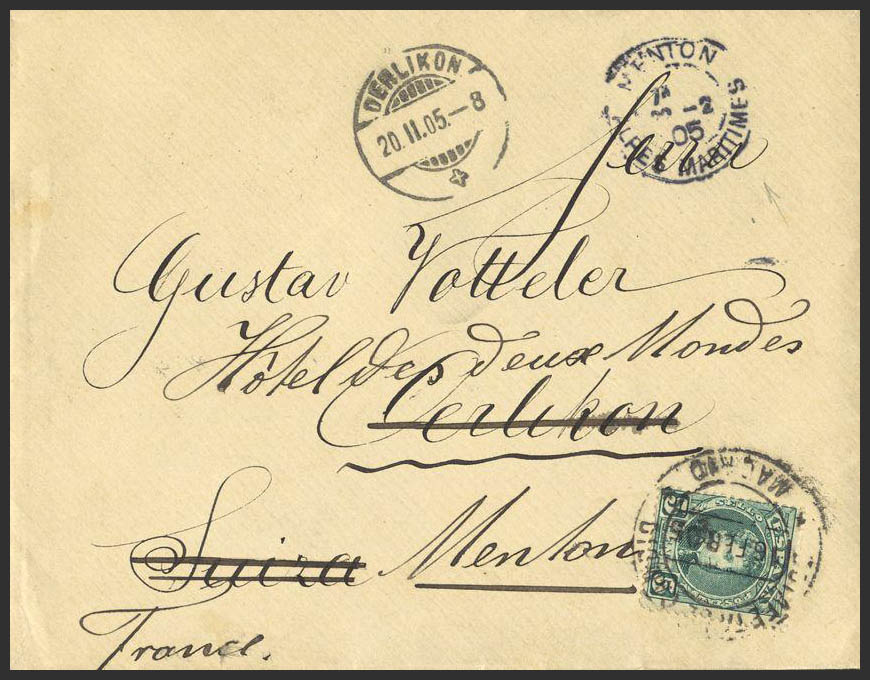 OERLIKON
20.II.05.-8
MENTON
-2
05
ALPES MARITIMES
Gustav Votteler
Hôtel des deux Mondes
Oerlikon
Suiza Menton
France.
MADRID